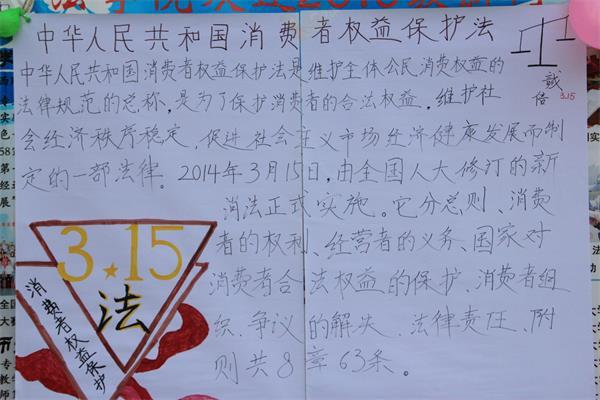 中华人民共和国消费者权益保护法
中华人民共和国消费者权益保护法是维护全体公民消费权益的
法律规范的总称，是为了保护消费者的合法权益，维护社
会经济秩序稳定，促进社会主义市场经济健康发展而制
定的一部法律。2014年3月15日，由全国人大修订的新
消法正式实施。它分总则、消费
者的权利、经营者的义务、国家对
消费者合法权益的保护、消费者组
织、争议的解决、法律责任、附
则共8章63条。
3.15
法
消费者权益保护
3.15